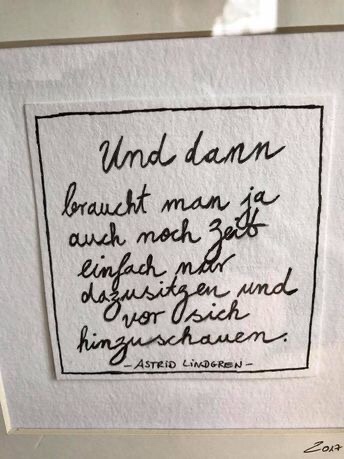 Und dann
braucht man ja
auch noch Zeit
einfach nur
dazusitzen und
vor sich
hinzuschauen.
- ASTRID LINDGREN -
2017